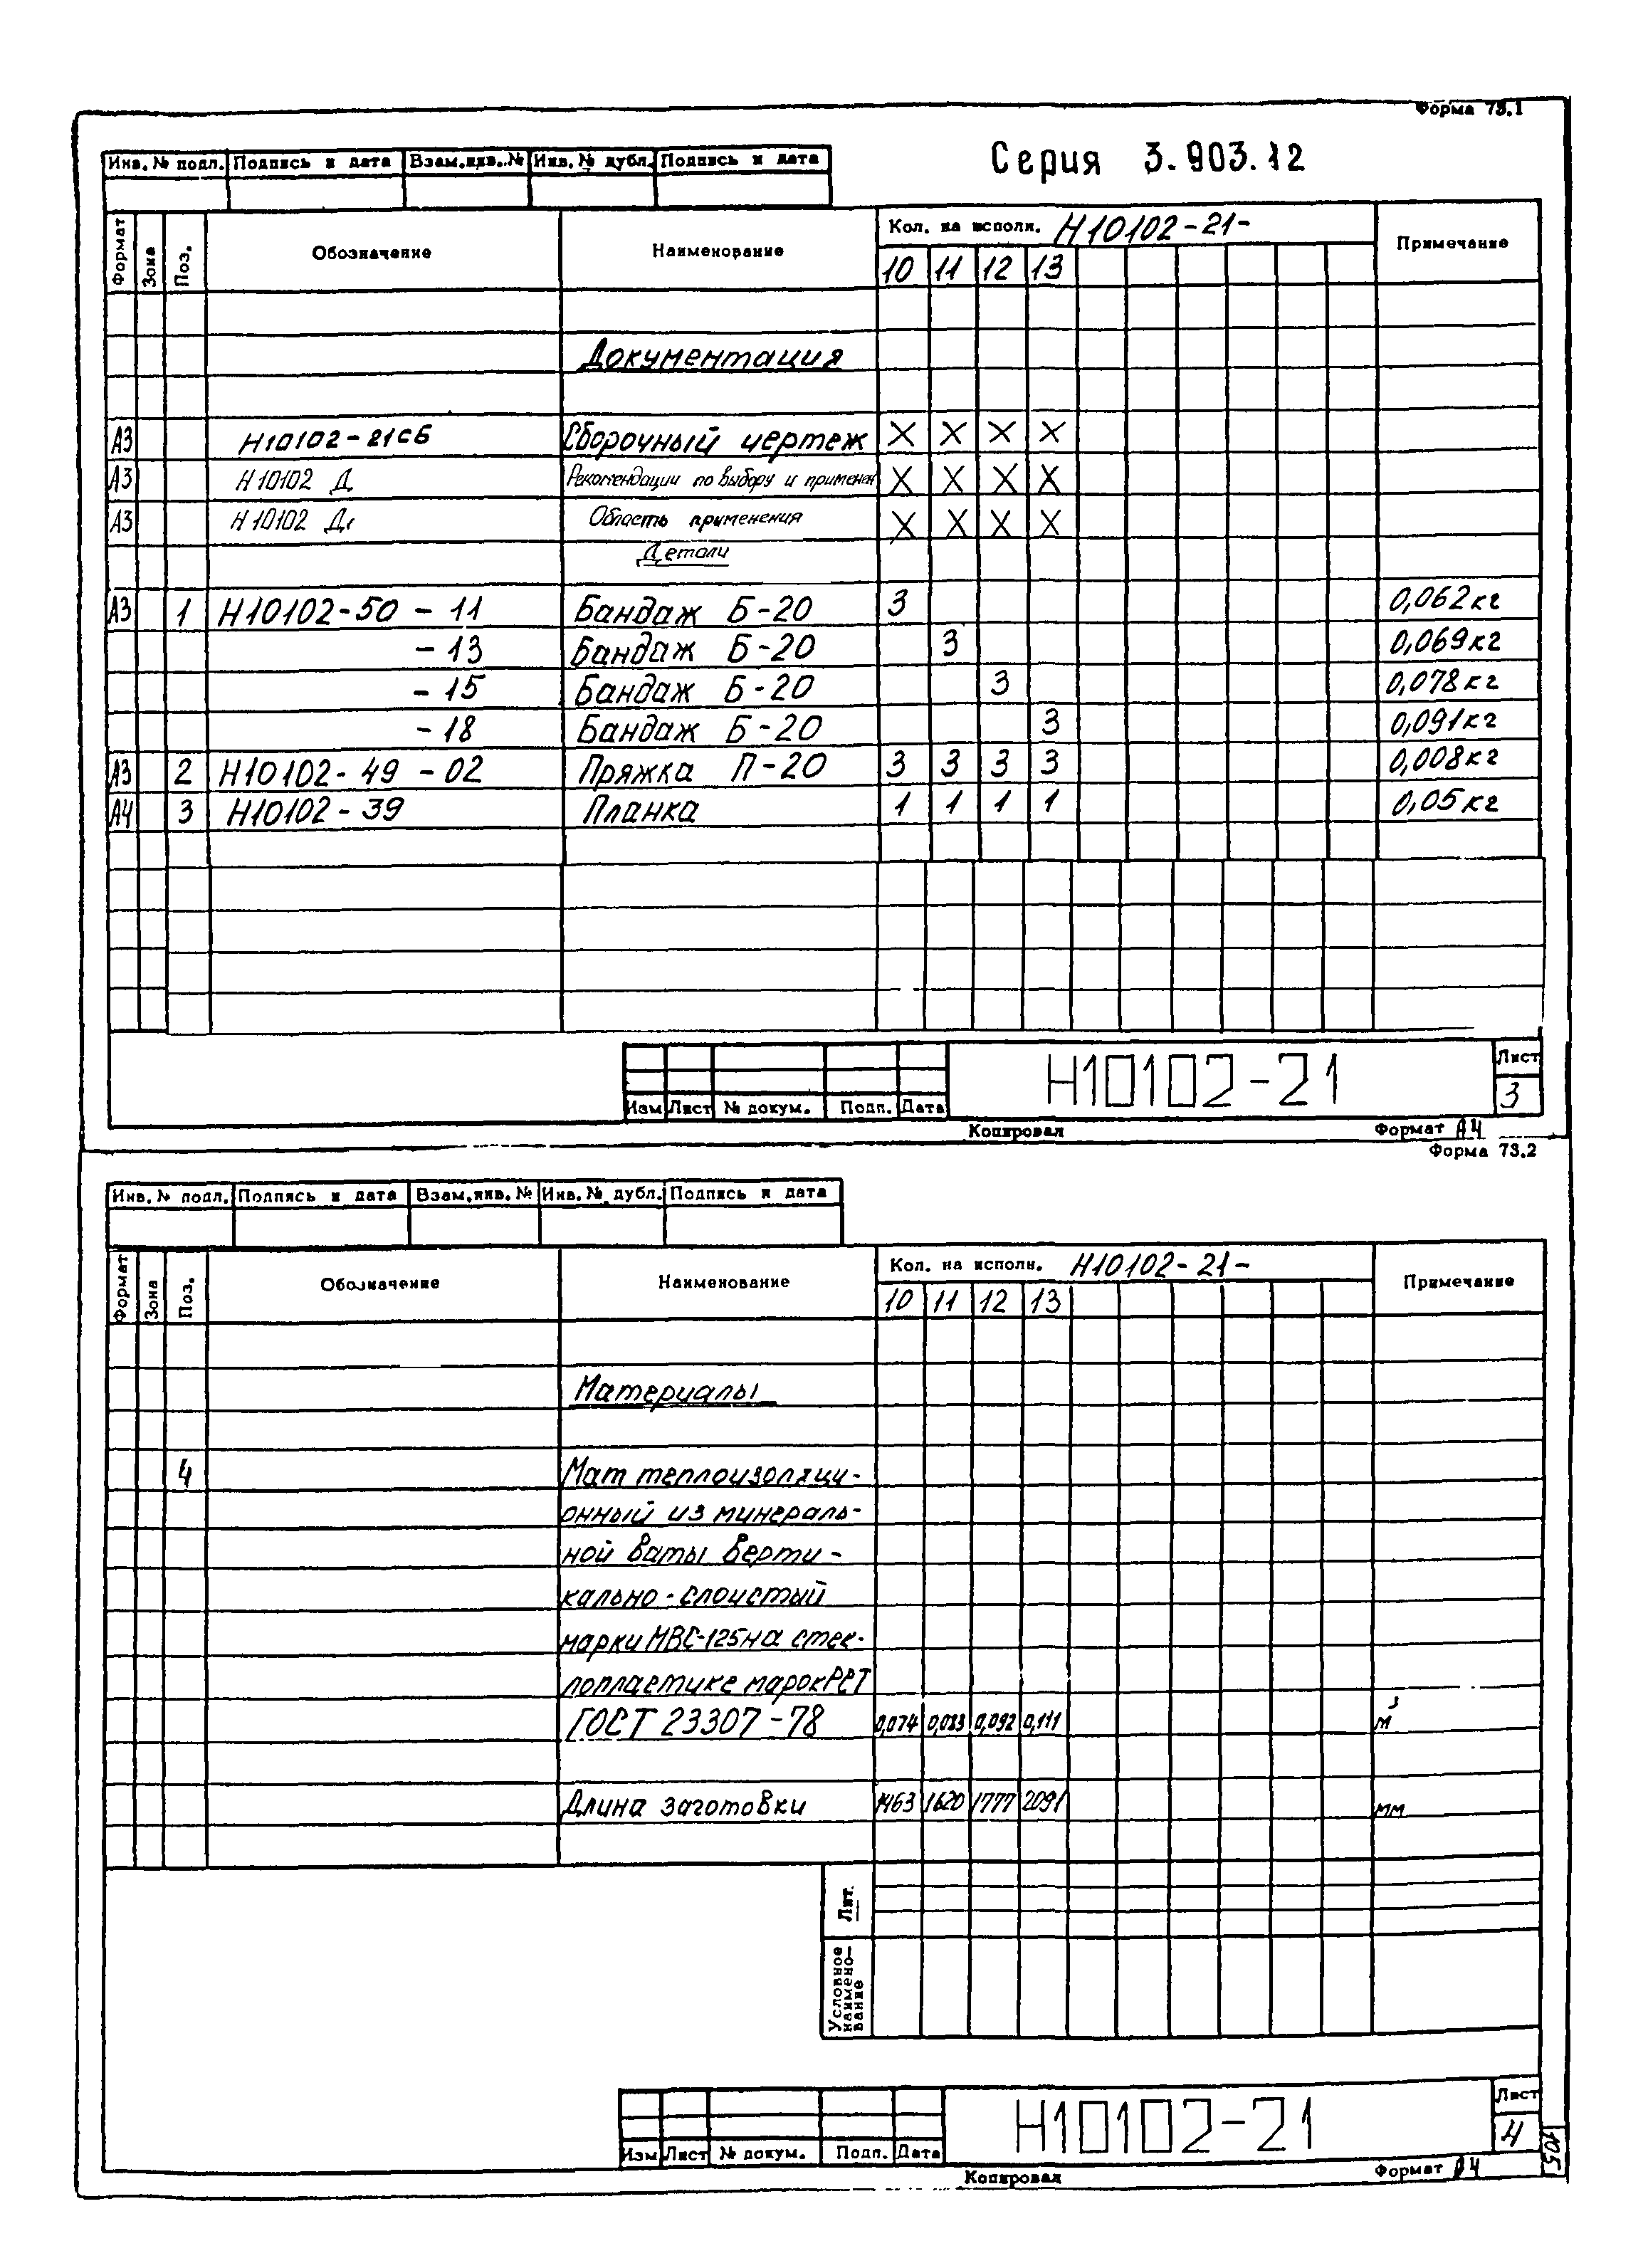 Форма 73.1
Серия 3.903.12
Инв. № подл. Подпись и дата Взам.инв.№ Инв. № дубл. Подпись и дата
Формат Зона Поз. Обозначение Наименование Кол. на исполн. Н10102-21- Примечание
10 11 12 13
Документация
А3 Н10102-21СБ Сборочный чертеж X X X X
А3 Н10102 Д Рекомендации по выбору и применен X X X X
А3 Н10102 Д1 Область применения X X X X
Детали
А3 1 Н10102-50 - 11 Бандаж Б-20 3 0,062кг
- 13 Бандаж Б-20 3 0,069кг
- 15 Бандаж Б-20 3 0,078кг
- 18 Бандаж Б-20 3 0,091кг
А3 2 Н10102-49 - 02 Пряжка П-20 3 3 3 3 0,008кг
А4 3 Н10102-39 Планка 1 1 1 1 0,05кг
Изм Лист № докум. Подп. Дата Н10102-21 Лист 3
Копировал Формат А4
Форма 73.2
Инв. № подл. Подпись и дата Взам.инв.№ Инв. № дубл. Подпись и дата
Формат Зона Поз. Обозначение Наименование Кол. на исполн. Н10102-21- Примечание
10 11 12 13
Материалы
4 Мат теплоизоляци-
онный из минераль-
ной ваты верти-
кально-слоистый
марки МВС-125 на стек-
лопластике марок РСТ
ГОСТ 23307-78 0,074 0,083 0,092 0,111 м³
Длина заготовки 1463 1620 1777 2091 мм
Лит.
Условное наимено-вание
Изм Лист № докум. Подп. Дата Н10102-21 Лист 4
Копировал Формат А4
105